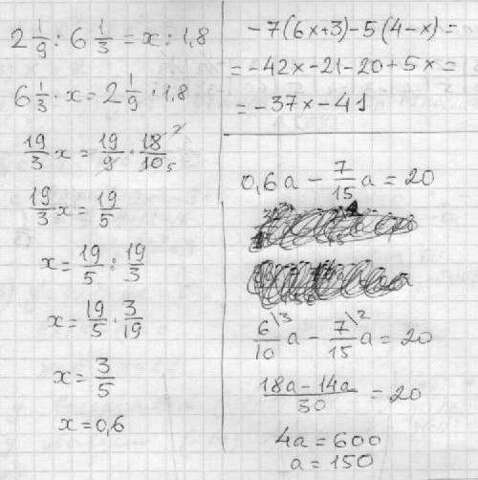 2 1/9 : 6 1/3 = x : 1,8
6 1/3 · x = 2 1/9 · 1,8
19/3 x = 19/9 · 18/10 2 5
19/3 x = 19/5
x = 19/5 : 19/3
x = 19/5 · 3/19
x = 3/5
x = 0,6
-7(6x+3)-5(4-x)=
= -42x-21-20+5x=
= -37x-41
0,6a - 7/15 a = 20
6\3/10 a - 7\2/15 a = 20
18a-14a/30 = 20
4a = 600
a = 150